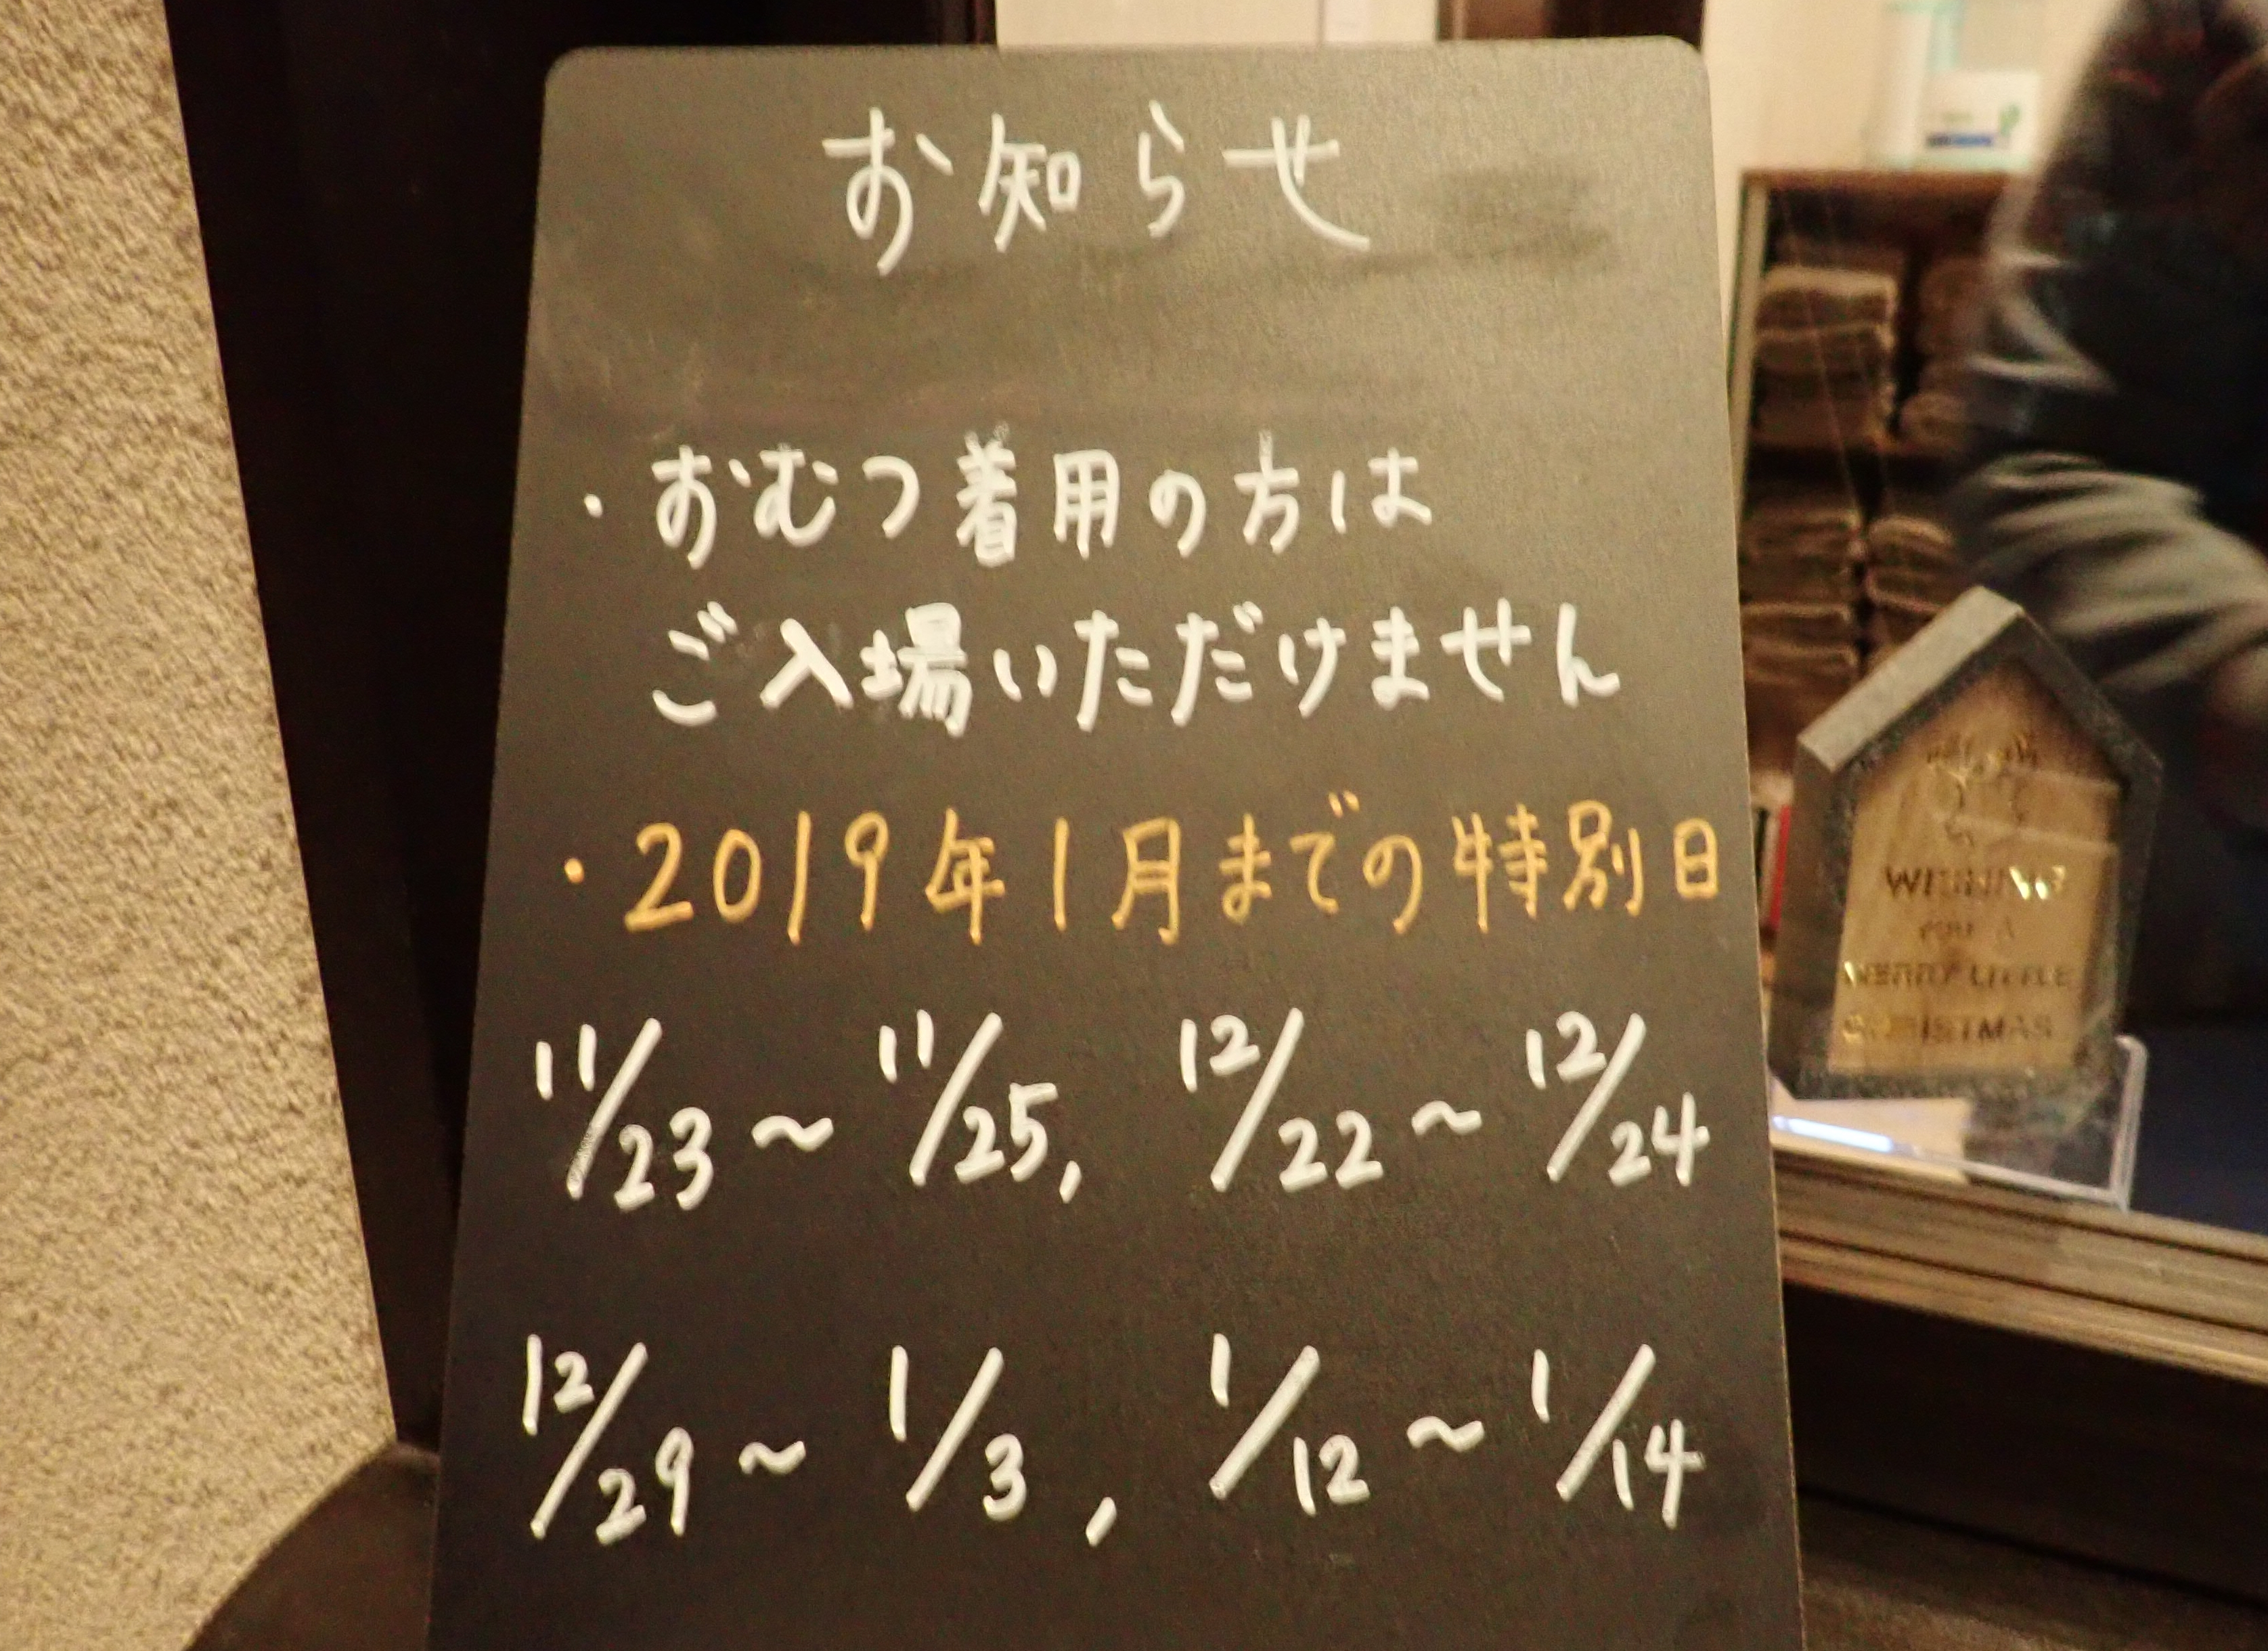 お知らせ
・おむつ着用の方は
ご入場いただけません
・2019年1月までの特別日
11/23～11/25, 12/22～12/24
12/29～1/3, 1/12～1/14
WISHING
YOU A
MERRY LITTLE
CHRISTMAS